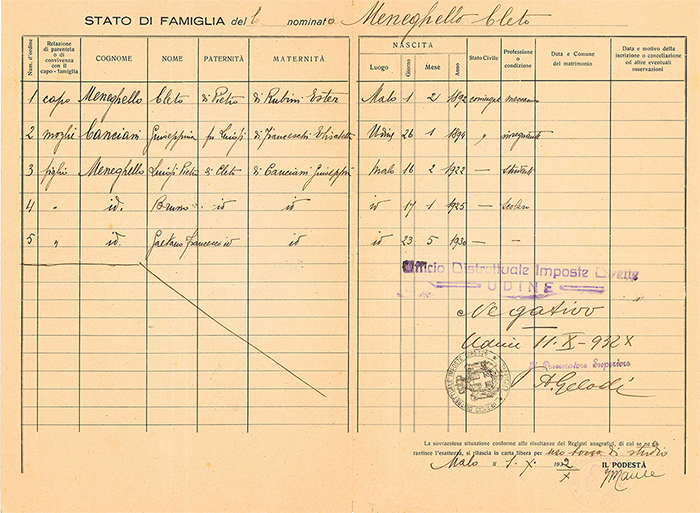 STATO DI FAMIGLIA del nominato Meneghello Cleto
Num. d'ordine
Relazione di parentela o di convivenza con il capo-famiglia
COGNOME
NOME
PATERNITÀ
MATERNITÀ
NASCITA
Luogo
Giorno
Mese
Anno
Stato Civile
Professione o condizione
Data e Comune del matrimonio
Data e motivo della iscrizione o cancellazione ed altre eventuali osservazioni
1 capo Meneghello Cleto di Pietro di Rubini Ester Malo 1 2 1892 coniugati meccanico
2 moglie Canciani Giuseppina fu Luigi di Franceschi Elisabetta Udine 26 1 1894 " insegnante
3 figlio Meneghello Luigi Pietro di Cleto di Canciani Giuseppina Malo 16 2 1922 — student
4 " id. Bruno id id id 17 1 1925 — scolaro
5 " id. Gaetano Francesco id id id 23 5 1930 — —
Ufficio Distrettuale Imposte Dirette
UDINE
Negativo
Udine 11-X-932 X
Il Procuratore Superiore
La sovraestesa situazione conforme alle risultanze dei Registri anagrafici, di cui se ne garantisce l'esattezza, si rilascia in carta libera per uso borsa di studio
Malo 1. X. 1932
X
IL PODESTÀ